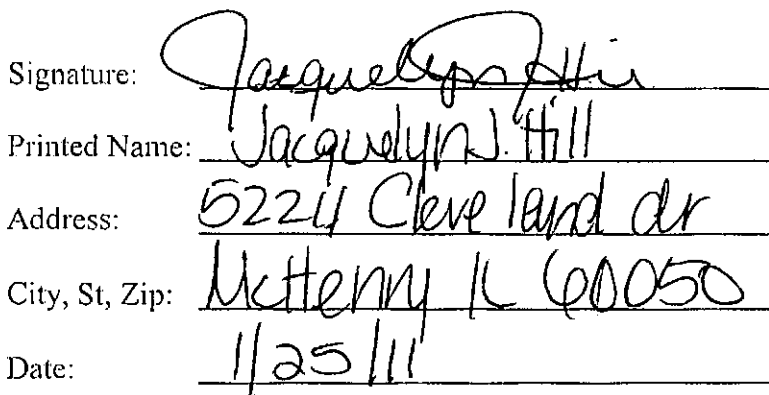 Signature: Jacquelyn J Hill
Printed Name: Jacquelyn J. Hill
Address: 5224 Cleveland dr
City, St, Zip: McHenry IL 60050
Date: 1/25/11